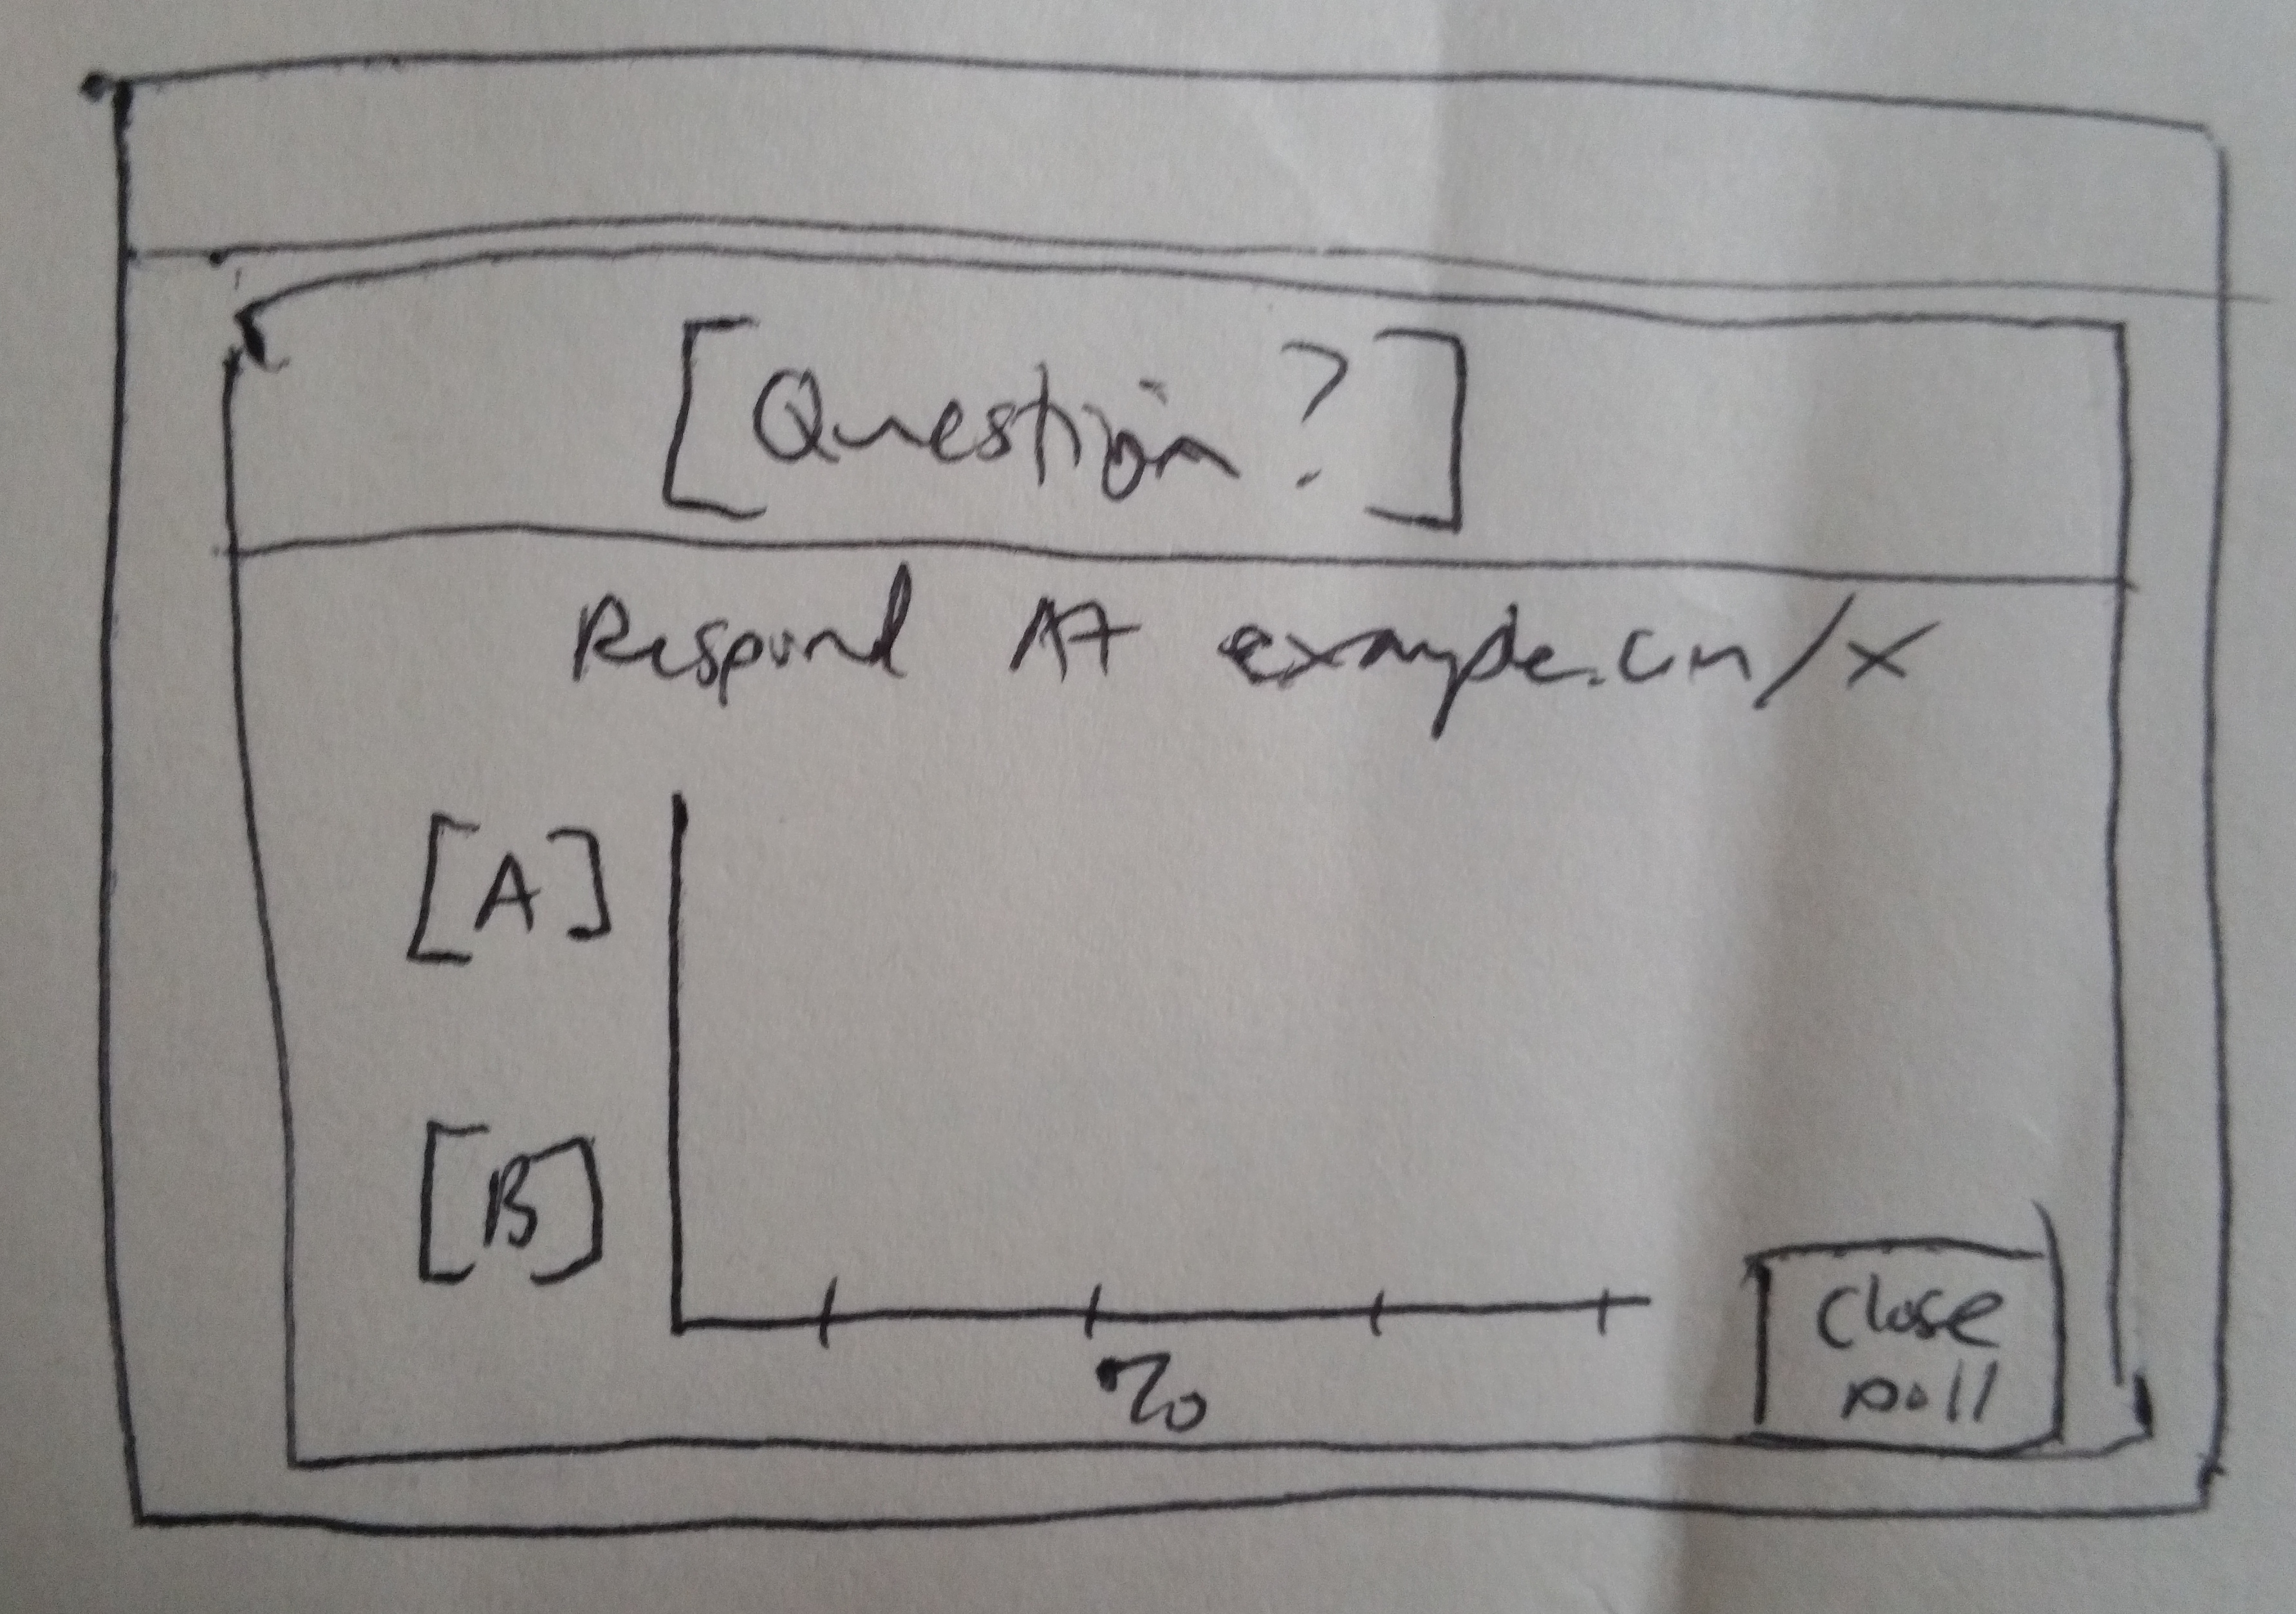 [Question?]
Respond At example.com/x
[A]
[B]
%
Close
poll